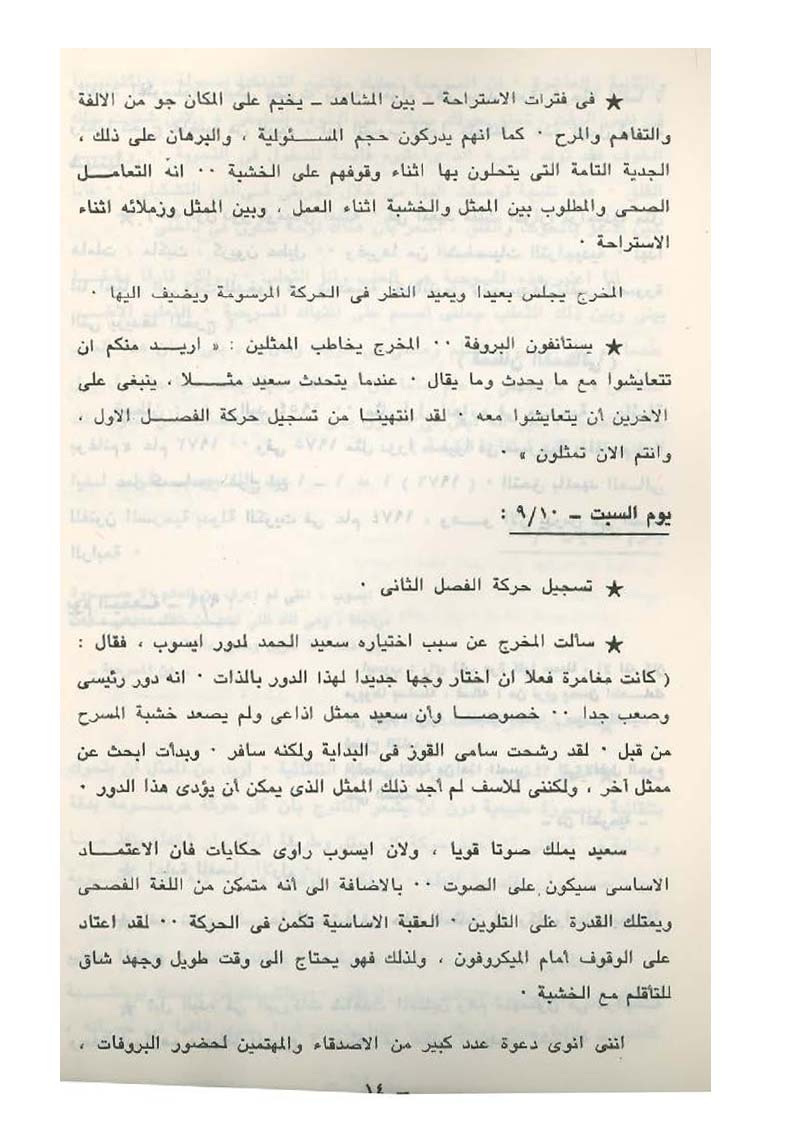 ★ فى فترات الاستراحة ـ بين المشاهد ـ يخيم على المكان جو من الالفة
والتفاهم والمرح ٠ كما انهم يدركون حجم المسـئولية ، والبرهان على ذلك ،
الجدية التامة التى يتحلون بها اثناء وقوفهم على الخشبة ٠٠ انه التعامـل
الصحى والمطلوب بين الممثل والخشبة اثناء العمل ، وبين الممثل وزملائه اثناء
الاستراحة ٠
المخرج يجلس بعيدا ويعيد النظر فى الحركة المرسومة ويضيف اليها ٠
★ يستأنفون البروفة ٠٠ المخرج يخاطب الممثلين : « اريـد منكم ان
تتعايشوا مع ما يحدث وما يقال ٠ عندما يتحدث سعيد مثـلا ، ينبغى على
الاخرين أن يتعايشوا معه ٠ لقد انتهينا من تسجيل حركة الفصـل الاول ،
وانتم الان تمثلون » ٠
يوم السبت ـ ٩/١٠ :
★ تسجيل حركة الفصل الثانى ٠
★ سألت المخرج عن سبب اختياره سعيد الحمد لدور ايسوب ، فقال :
( كانت مغامرة فعلا ان اختار وجها جديدا لهذا الدور بالذات ٠ انه دور رئيسى
وصعب جدا ٠٠ خصوصـا وأن سعيد ممثل اذاعى ولم يصعد خشبة المسرح
من قبل ٠ لقد رشحت سامى القوز فى البداية ولكنه سافر ٠ وبدأت ابحث عن
ممثل آخر ، ولكننى للاسف لم أجد ذلك الممثل الذى يمكن أن يؤدى هذا الدور ٠
سعيد يملك صوتا قويا ، ولان ايسوب راوى حكايات فان الاعتمـاد
الاساسى سيكون على الصوت ٠٠ بالاضافة الى أنه متمكن من اللغة الفصحى
ويمتلك القدرة على التلوين ٠ العقبة الاساسية تكمن فى الحركة ٠٠ لقد اعتاد
على الوقوف أمام الميكروفون ، ولذلك فهو يحتاج الى وقت طويل وجهد شاق
للتأقلم مع الخشبة ٠
اننى انوى دعوة عدد كبير من الاصدقاء والمهتمين لحضور البروفات ،
ـ ١٤